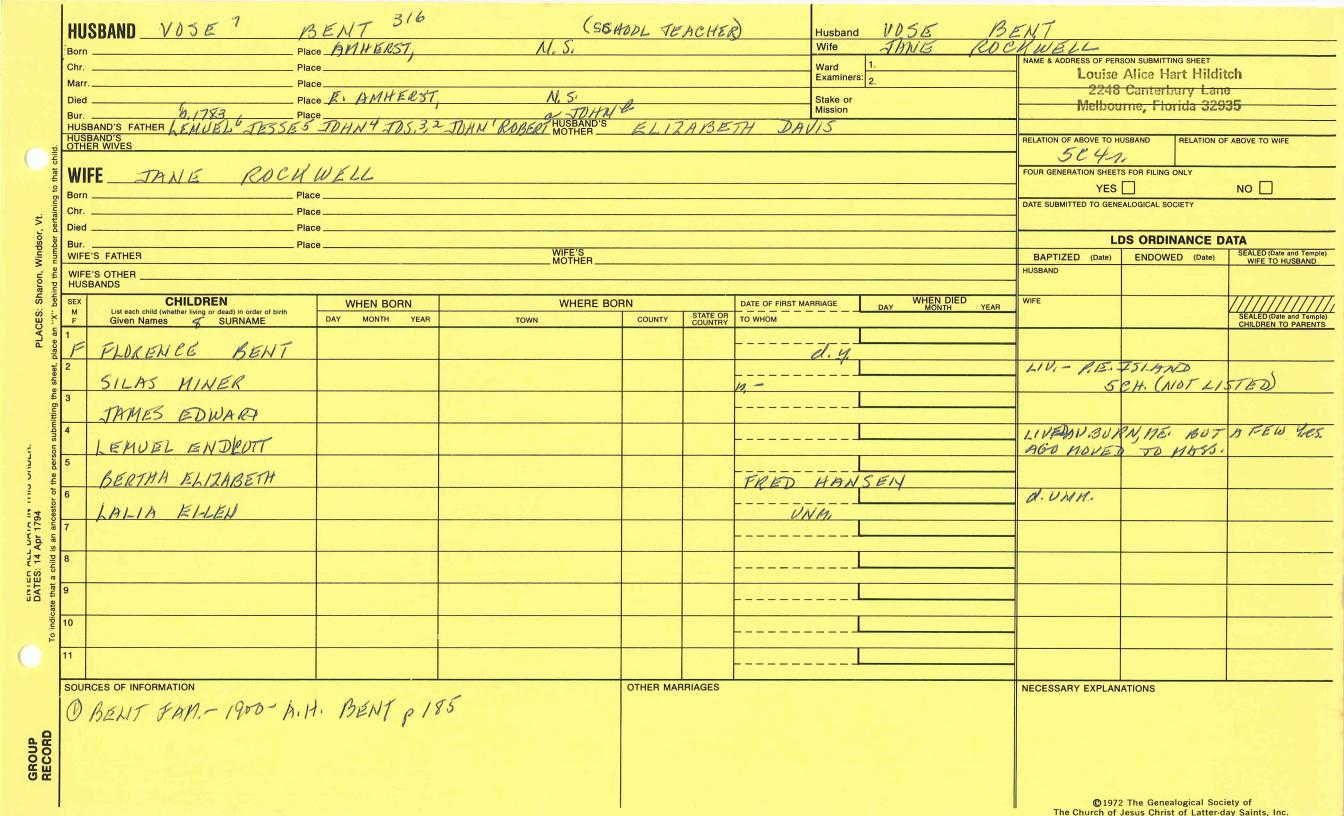 HUSBAND VOSE 7 BENT 316 (SCHOOL TEACHER)
Born Place AMHERST, N.S.
Chr. Place
Marr. Place
Died Place E. AMHERST, N.S.
Bur. b. 1783 Place
HUSBAND'S FATHER LEMUEL 6 JESSE 5 JOHN 4 JOS. 3, 2 JOHN 1 ROBERT a JOHN b HUSBAND'S MOTHER ELIZABETH DAVIS
HUSBAND'S OTHER WIVES
WIFE JANE ROCKWELL
Born Place
Chr. Place
Died Place
Bur. Place
WIFE'S FATHER WIFE'S MOTHER
WIFE'S OTHER HUSBANDS
Husband VOSE BENT
Wife JANE ROCKWELL
Ward Examiners: 1. 2.
Stake or Mission
NAME & ADDRESS OF PERSON SUBMITTING SHEET
Louise Alice Hart Hilditch
2248 Canterbury Lane
Melbourne, Florida 32935
RELATION OF ABOVE TO HUSBAND RELATION OF ABOVE TO WIFE
5C4r.
FOUR GENERATION SHEETS FOR FILING ONLY
YES NO
DATE SUBMITTED TO GENEALOGICAL SOCIETY
LDS ORDINANCE DATA
BAPTIZED (Date) ENDOWED (Date) SEALED (Date and Temple) WIFE TO HUSBAND
HUSBAND
WIFE
SEALED (Date and Temple) CHILDREN TO PARENTS
SEX M F
CHILDREN
List each child (whether living or dead) in order of birth
Given Names & SURNAME
WHEN BORN
DAY MONTH YEAR
WHERE BORN
TOWN COUNTY STATE OR COUNTRY
DATE OF FIRST MARRIAGE
TO WHOM
WHEN DIED
DAY MONTH YEAR
1 F FLORENCE BENT d. y.
2 SILAS MINER m. - LIV. - P.E. ISLAND
5 CH. (NOT LISTED)
3 JAMES EDWARD
4 LEMUEL ENDICOTT LIVED AUBURN, ME. BUT A FEW YRS.
AGO MOVED TO MASS.
5 BERTHA ELIZABETH FRED HANSEN
6 LALIA ELLEN UNM. d. UNM.
7
8
9
10
11
SOURCES OF INFORMATION
① BENT FAM. - 1900 - A.H. BENT p 185
OTHER MARRIAGES
NECESSARY EXPLANATIONS
©1972 The Genealogical Society of
The Church of Jesus Christ of Latter-day Saints, Inc.
PLACES: Sharon, Windsor, Vt.
ENTER ALL DATA IN THIS ORDER:
DATES: 14 Apr 1794
To indicate that a child is an ancestor of the person submitting the sheet, place an "X" behind the number pertaining to that child.
GROUP
RECORD